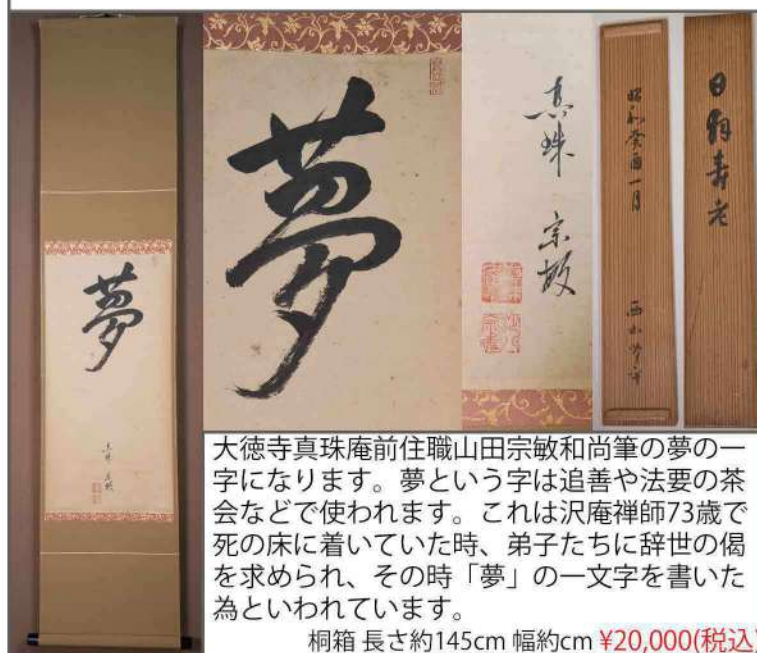 夢
真珠 宗敏
夢
真珠 宗敏
昭和癸酉一月
大徳寺真珠庵前住職山田宗敏和尚筆の夢の一
字になります。夢という字は追善や法要の茶
会などで使われます。これは沢庵禅師73歳で
死の床に着いていた時、弟子たちに辞世の偈
を求められ、その時「夢」の一文字を書いた
為といわれています。
桐箱 長さ約145cm 幅約cm ¥20,000(税込)